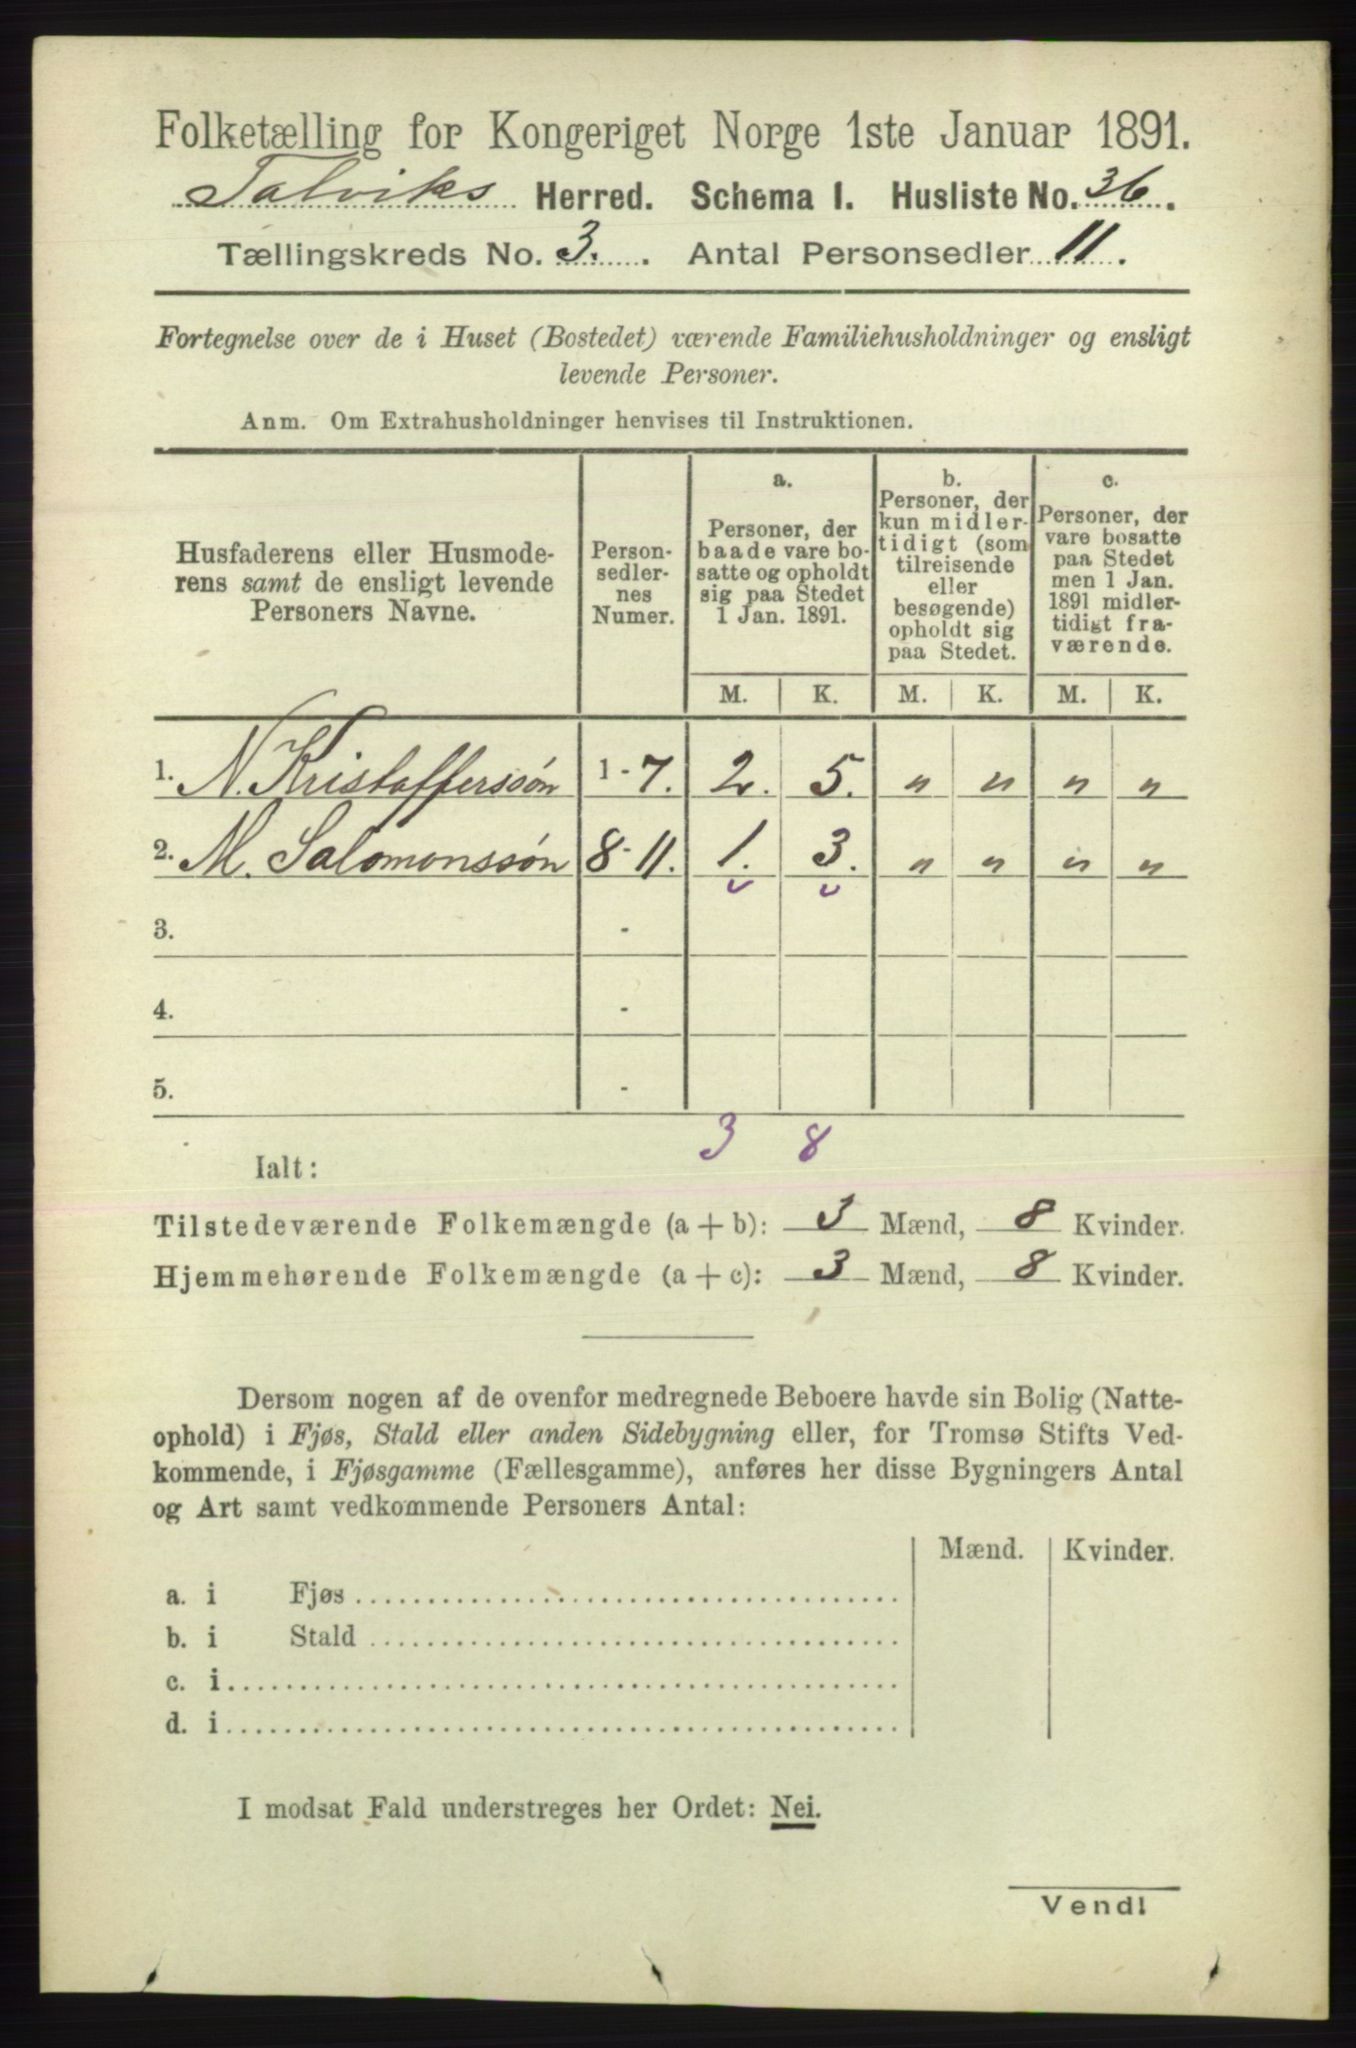 Folketælling for Kongeriget Norge 1ste Januar 1891.
Talviks Herred. Schema I. Husliste No. 36.
Tællingskreds No. 3. Antal Personsedler 11.
Fortegnelse over de i Huset (Bostedet) værende Familiehusholdninger og ensligt
levende Personer.
Anm. Om Extrahusholdninger henvises til Instruktionen.
Husfaderens eller Husmode-
rens samt de ensligt levende
Personers Navne.
Person-
sedler-
nes
Numer.
a.
Personer, der
baade vare bo-
satte og opholdt
sig paa Stedet
1 Jan. 1891.
b.
Personer, der
kun midler-
tidigt (som
tilreisende
eller
besøgende)
opholdt sig
paa Stedet.
c.
Personer, der
vare bosatte
paa Stedet
men 1 Jan.
1891 midler-
tidigt fra-
værende.
M. K. M. K. M. K.
1. N. Kristofferssön 1-7. 2. 5. " " " "
2. M. Salomonssön 8-11. 1. 3. " " " "
3. -
4. -
5. -
3 8
Ialt:
Tilstedeværende Folkemængde (a + b): 3 Mænd, 8 Kvinder.
Hjemmehørende Folkemængde (a + c): 3 Mænd, 8 Kvinder.
Dersom nogen af de ovenfor medregnede Beboere havde sin Bolig (Natte-
ophold) i Fjøs, Stald eller anden Sidebygning eller, for Tromsø Stifts Ved-
kommende, i Fjøsgamme (Fællesgamme), anføres her disse Bygningers Antal
og Art samt vedkommende Personers Antal:
Mænd. Kvinder.
a. i Fjøs
b. i Stald
c. i
d. i
I modsat Fald understreges her Ordet: Nei.
Vend!